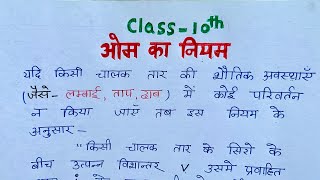 Class-10th
ओस का नियम
यदि किसी चालक तार की भौतिक अवस्थाएँ
(जैसे- लम्बाई, ताप, दाब) में कोई परिवर्तन
न किया जाए तब इस नियम के
अनुसार-
"किसी चालक तार के सिरो के
बीच उत्पन्न विभवान्तर V उसमे प्रवाहित